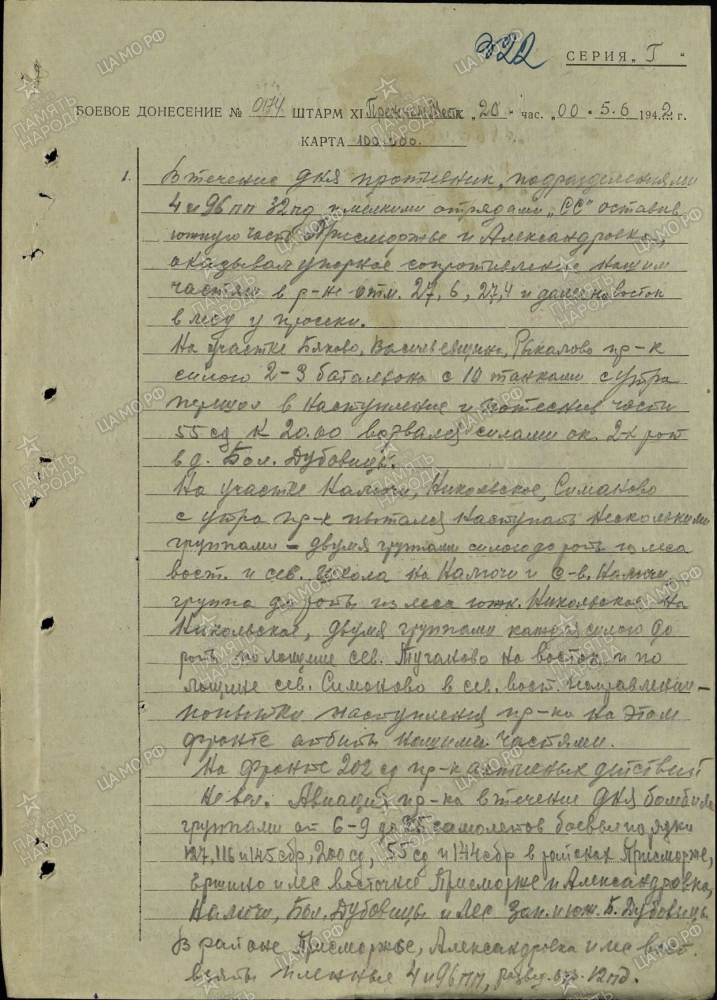 322
СЕРИЯ „Г"
БОЕВОЕ ДОНЕСЕНИЕ № 0174 ШТАРМ XI „20" час. „00" 5.6 1942 г.
КАРТА 100.000.
1. В течение дня противник, подразделениями
4 и 96 пп 32 пд и мелкими отрядами „СС" оставив
южную часть Присморжье и Александровка,
оказывал упорное сопротивление нашим
частям в р-не отм. 27,6, 27,4 и далее на восток
в лесу у просеки.
На участке Бяково, Васильевщина, Рыкалово пр-к
силою 2-3 батальона с 10 танками с утра
перешел в наступление и потеснив части
55 сд к 20.00 ворвался силами ок. 2-х рот
в д. Бол. Дубовицы.
На участке Калючи, Никольское, Симаново
с утра пр-к пытался наступать несколькими
группами – двумя группами силою до роты из леса
вост. и сев. школа на Калючи и с-в. Калючи,
группа до роты из леса южн. Никольское на
Никольское, двумя группами каждая силою до
роты по лощине сев. Туганово на восток и по
лощине сев. Симаново в сев. вост. направлении –
попытки наступления пр-ка на этом
фронте отбиты нашими частями.
На фронте 202 сд пр-к активных действий
не вел. Авиация пр-ка в течение дня бомбила
группами от 6-9 до 25 самолетов боевые порядки
127, 116 и 145 сбр, 200 сд, 55 сд и 144 сбр в районах Присморжье,
Ершино и лес восточнее Присморжье и Александровка,
Калючи, Бол. Дубовицы и лес зап. и юж. Б. Дубовицы.
В районе Присморжье, Александровка и лес вост.
взяты пленные 4 и 96 пп, развед. 12 пд.